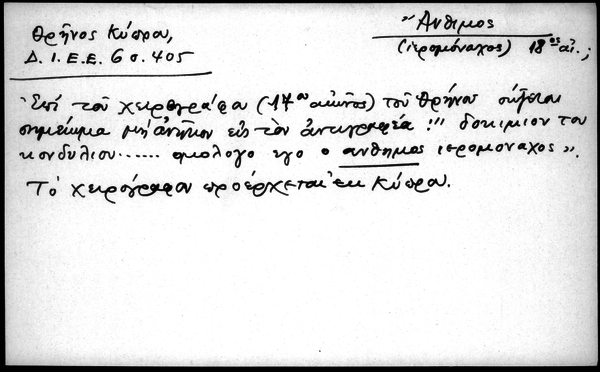 Θρῆνος Κύπρου,
Δ. Ι. Ε. Ε. 6 σ. 405
Ἄνθιμος
(ἱερομόναχος) 18ος αἰ. ;
Ἐπί τοῦ χειρογράφου (17ου αἰῶνος) τοῦ Θρήνου σῴζεται
σημείωμα μή ἀνῆκον εἰς τὸν ἀντιγραφέα: "δοκιμιον του
κονδυλιου...... ομολογο εγο ο ανθημος ιερομοναχος".
Τό χειρόγραφον προέρχεται ἐκ Κύπρου.